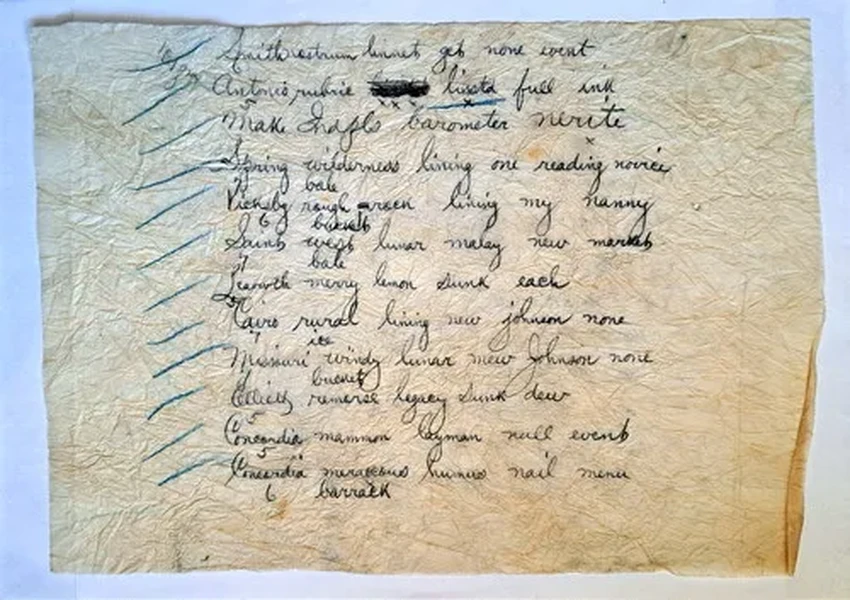 Smith nostrum linnet get none event
Antonio rubric lissta full ink
5
Make Indpls barometer nerite
Spring wilderness lining one reading novice
7 bale
Vicksby rough rock lining my nanny
6 bucket
Saint west lunar malay new market
7 bale
Leavwth merry lemon sunk each
Cairo rural lining new johnson none
7 ice
Missouri windy lunar mew Johnson none
bucket
Elliott remorse legacy sunk dew
Concordia mammon layman null event
5
Concordia meraccous humus nail menu
6 barrack